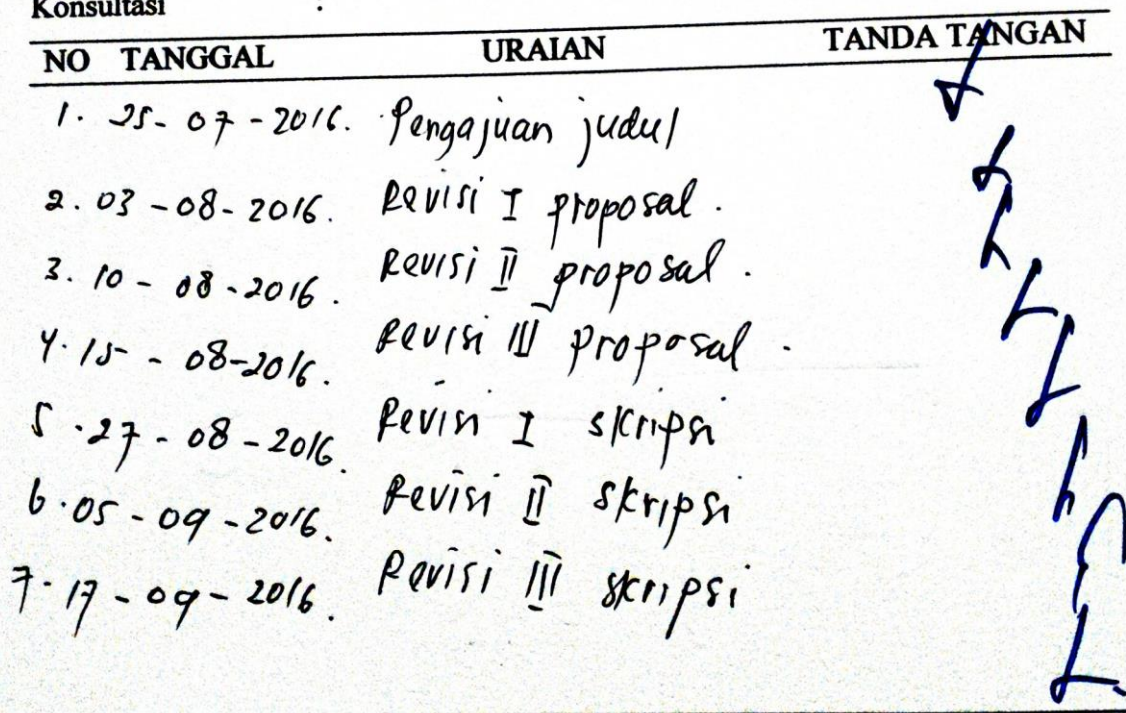 Konsultasi
NO TANGGAL URAIAN TANDA TANGAN
1. 25-07-2016. Pengajuan judul
2. 03-08-2016. Revisi I proposal.
3. 10-08-2016. Revisi II proposal.
4. 15-08-2016. Revisi III proposal.
5. 27-08-2016. Revisi I skripsi
6. 05-09-2016. Revisi II skripsi
7. 17-09-2016. Revisi III skripsi